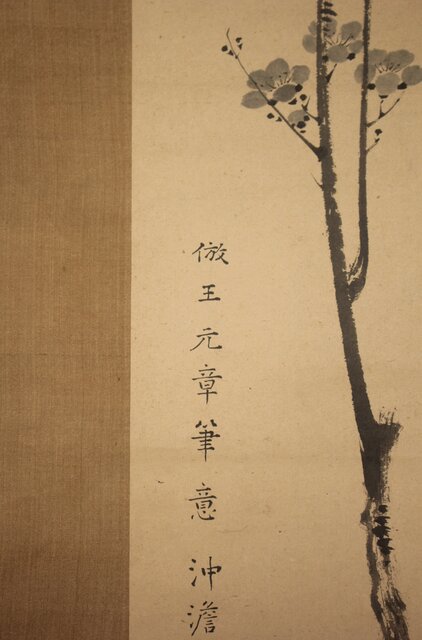 倣王元章筆意沖澹